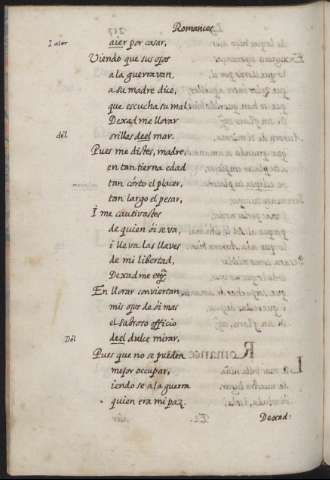 Romances
I aier
aier por casar,
Viendo que sus ojos
a la guerra van,
a su madre dize,
que escucha su mal,
Dexad me llorar
dél
orillas deel mar.
Pues me distes, madre,
en tan tierna edad
tan córto el placer,
tan largo el pesar,
I me cautivastes
de quien oi se va,
i lleva las llaves
de mi libertad,
Dexad me
En llorar conviertan
mis ojos de oi mas
el sabroso officio
Dél
deel dulce mirar,
Pues que no se pueden
mejor occupar,
iendo se a la guerra
quien era mi paz.
Dexad